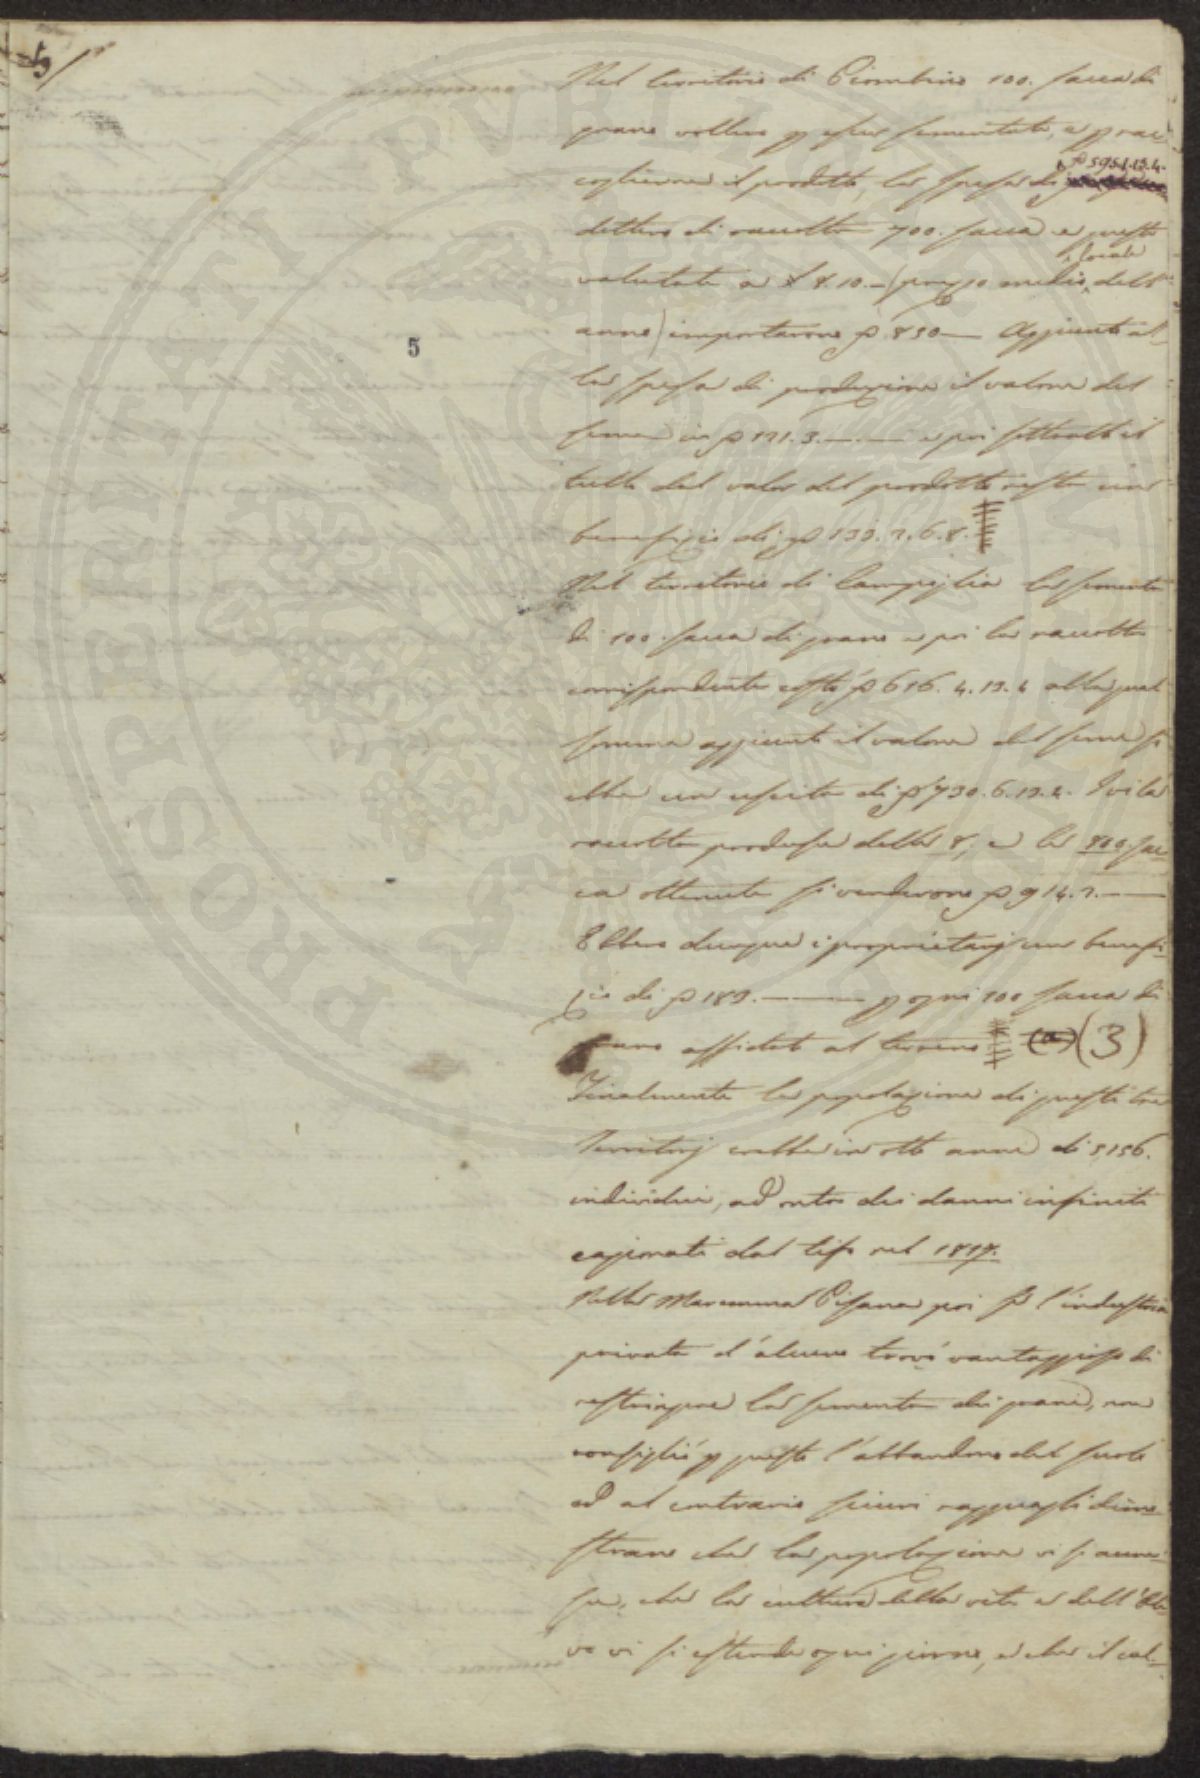 Nel territorio di Piombino 100. sacca di
grano vollero p esser sementate, e p rac-
coglierne il prodotto, la spesa di p 595.1.13.4.
dettero di raccolta 700. sacca e queste
valutate a £ 8.10.– (prezzo medio locale dell'
anno) importarono p 850— Aggiunto al-
la spesa di produzione il valore del
seme in p 121.3.—.— e poi sottratto il
tutto dal valor del prodotto resta un
benefizio di p 133.2.6.8.
Nel territorio di Campiglia la sementa
di 100. sacca di grano e poi la raccolta
corrispondente costò p 616.4.13.4 alla qual
somma aggiunto il valore del seme si
ebbe un uscita di p 730.6.13.4. Ivi la
raccolta produsse delle 8, e le 800. sac-
ca ottenute si venderono p 914.2.——
Ebbero dunque i proprietarj un benefi-
zio di p 183.——— p ogni 100 sacca di
grano affidato al terreno (a) (3)
Finalmente la popolazione di questi tre
Territorj crebbe in otto anni di 5156.
individui, ad onta dei danni infiniti
cagionati dal tifo nel 1817.
Nella Maremma Pisana poi se l'industria
privata d'alcuno trovò vantaggioso di
restringere la sementa dei grani, non
consigliò p questo l'abbandono del suolo
ed al contrario sicuri ragguagli dimo-
strano che la popolazione vi si accre-
sce, che la cultura della vite e dell'Oli-
vo vi si estende ogni giorno, e che il cal-
5